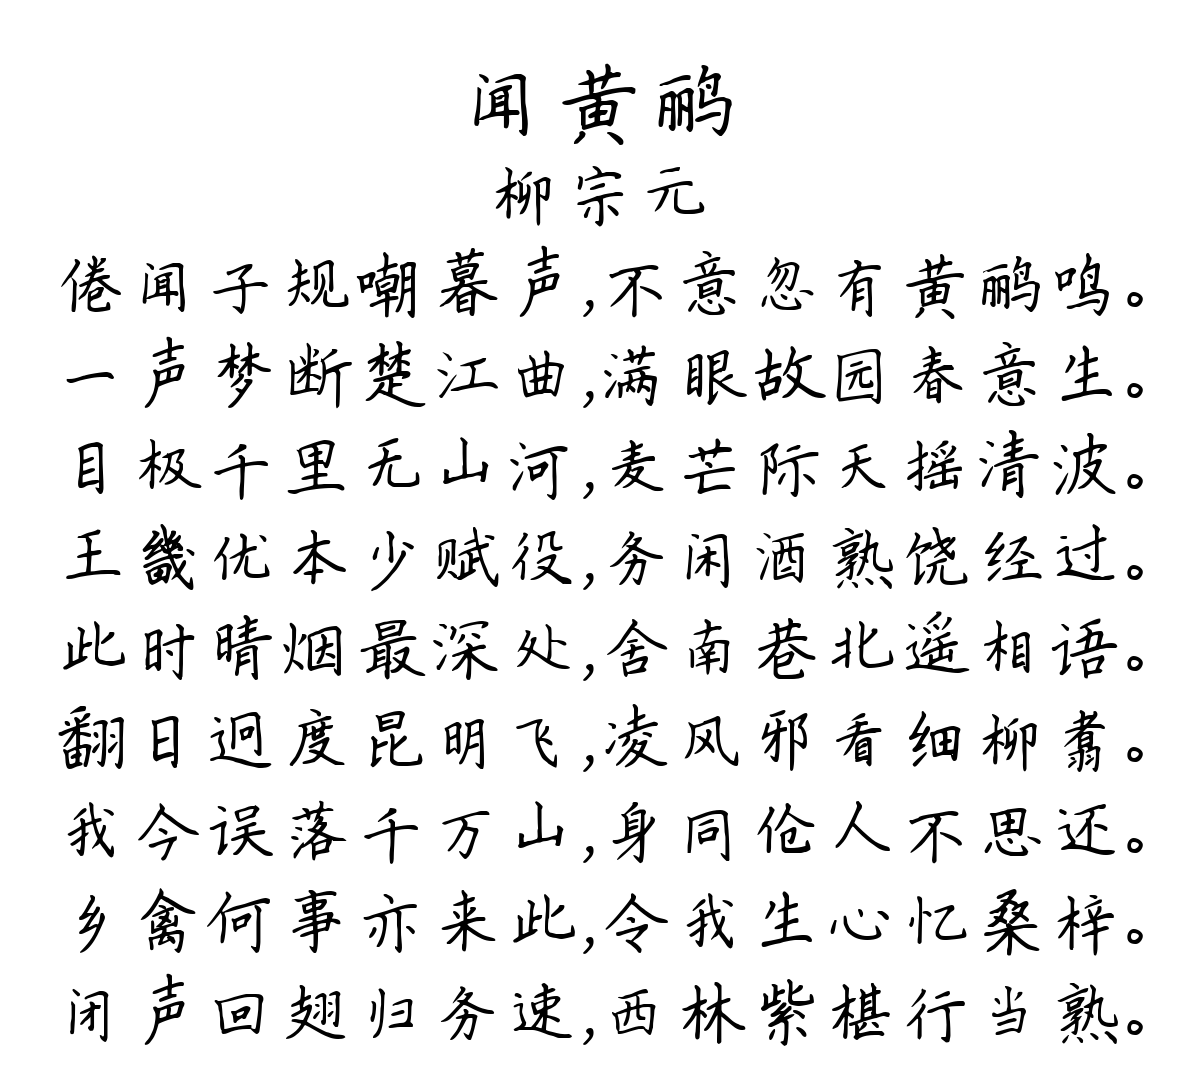 闻黄鹂
柳宗元
倦闻子规嘲暮声,不意忽有黄鹂鸣。
一声梦断楚江曲,满眼故园春意生。
目极千里无山河,麦芒际天摇清波。
王畿优本少赋役,务闲酒熟饶经过。
此时晴烟最深处,舍南巷北遥相语。
翻日迥度昆明飞,凌风邪看细柳翥。
我今误落千万山,身同伧人不思还。
乡禽何事亦来此,令我生心忆桑梓。
闭声回翅归务速,西林紫椹行当熟。